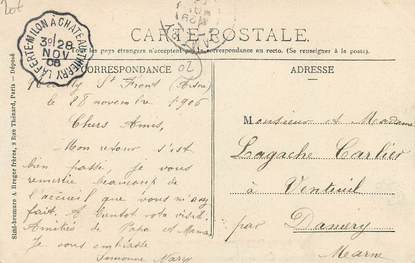 CARTE-POSTALE
Tous les pays étrangers n'acceptent pas la correspondance au recto. (Se renseigner à la poste).
CORRESPONDANCE
ADRESSE
LA FERTÉ-MILON A CHATEAU-THIERRY
3°
28
NOV
06
Neuilly St Front (Aisne)
le 28 novembre 1906
Chers Amis,
Mon retour s'est
bien passé, je vous
remercie beaucoup de
l'accueil que vous m'avez
fait. A bientôt votre visite.
Amitiés de Papa et Maman
Je vous embrasse
Simonne Mary
Monsieur et Madame
Lagache Carlier
à Venteuil
par Damery
Marne
Simi-bromure A. Breger frères, 9 Rue Thénard, Paris — Déposé